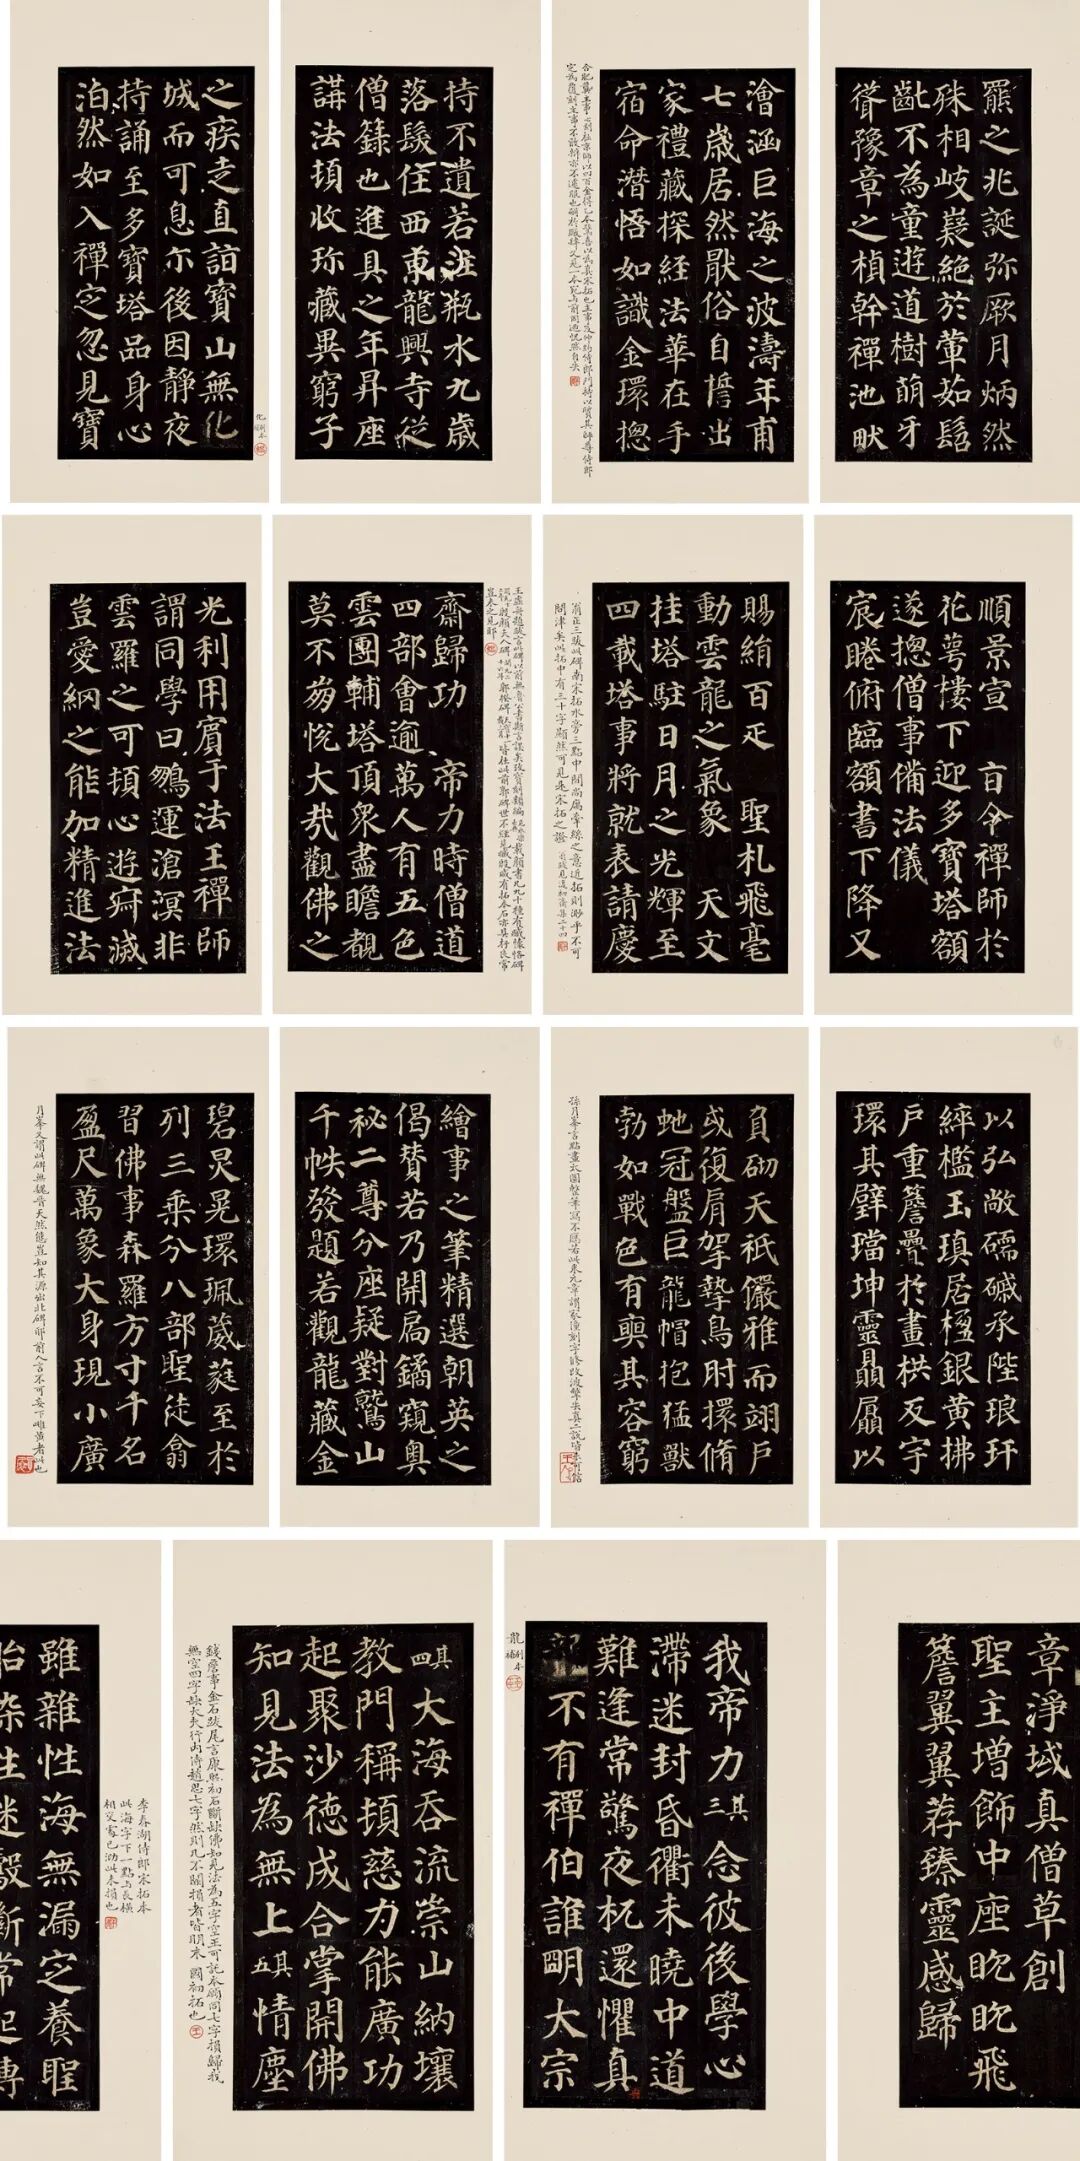 羆之兆誕弥厥月炳然
殊相岐嶷絶於葷茹髫
齔不為童遊道樹萌牙
聳豫章之楨幹禪池畎
澮涵巨海之波濤年甫
七歲居然厭俗自誓出
家禮藏探經法華在手
宿命潛悟如識金環揔
持不遺若注瓶水九歲
落髮住西京龍興寺從
僧籙也進具之年昇座
講法頓收珎藏異窮子
化
之疾走直詣寶山無化
城而可息尒後因静夜
持誦至多寶塔品身心
泊然如入禪定忽見寶
順景宣　旨令禪師於
花萼樓下迎多寶塔額
遂揔僧事備法儀
宸睠俯臨額書下降又
賜絹百疋　聖札飛毫
動雲龍之氣象　天文
挂塔駐日月之光輝至
四載塔事將就表請慶
翁正三跋此碑南宋拓水旁三點中間尚屬牽絲之意近拓則渺乎不可
問津矣此拓中有三十字顯然可見是宋拓之證
齋歸功　帝力時僧道
四部會逾萬人有五色
雲團輔塔頂衆盡瞻覩
莫不崩悅大哉觀佛之
光利用賓于法王禪師
謂同學曰鵬運滄溟非
雲羅之可頓心遊寂滅
豈愛網之能加精進法
以弘敞礝磩承陛琅玕
綷檻玉瑱居楹銀黄拂
戶重簷疊於畫栱反宇
環其壁璫坤靈贔屭以
負砌天祇儼雅而翊戶
或復肩拏摯鳥肘擐脩
虵冠盤巨龍帽抱猛獸
勃如戰色有奭其容窮
繪事之筆精選朝英之
偈贊若乃開扄鐍窺奥
祕二尊分座疑對鷲山
千帙發題若觀龍藏金
碧炅晃環珮葳蕤至於
列三乘分八部聖徒翕
習佛事森羅方寸千名
盈尺萬象大身現小廣
月峯又謂此碑無魏晉天然態豈知其源出北碑耶前人言不可妄下雌黄者此也
章淨域真僧草創
聖主增飾中座眈眈飛
簷翼翼荐臻靈感歸
我帝力其三念彼後學心
滯迷封昏衢未曉中道
難逢常驚夜杌還懼真
龍不有禪伯誰明大宗
其四大海吞流崇山納壤
教門稱頓慈力能廣功
起聚沙德成合掌開佛
知見法為無上其五情塵
李春湖侍郎宋拓本
此海字下一點与長橫
相交處已泐此本損也
雖雜性海無漏定養聖
胎染生迷縠斷常起縛